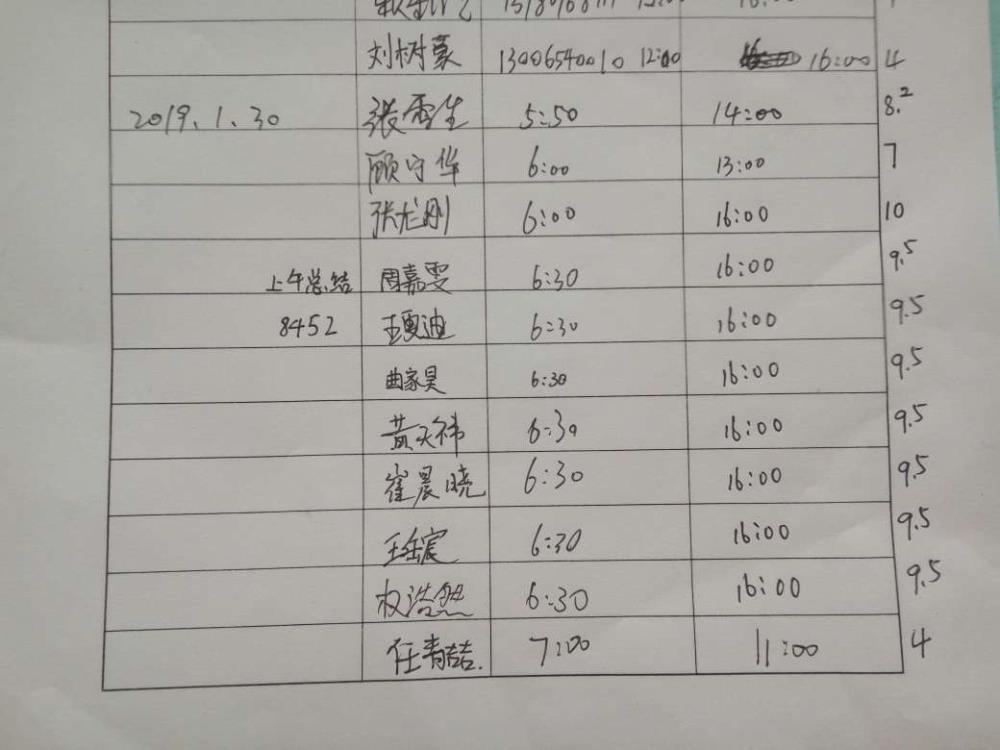 刘树蒙 13006540010 12:00 16:00 4
2019.1.30 张雷生 5:50 14:00 8.2
顾守华 6:00 13:00 7
张龙刚 6:00 16:00 10
上午总结 周嘉雯 6:30 16:00 9.5
8452 王夏迪 6:30 16:00 9.5
曲家昊 6:30 16:00 9.5
黄天祎 6:30 16:00 9.5
崔晨晓 6:30 16:00 9.5
6:30 16:00 9.5
权浩然 6:30 16:00 9.5
任青喆. 7:00 11:00 4